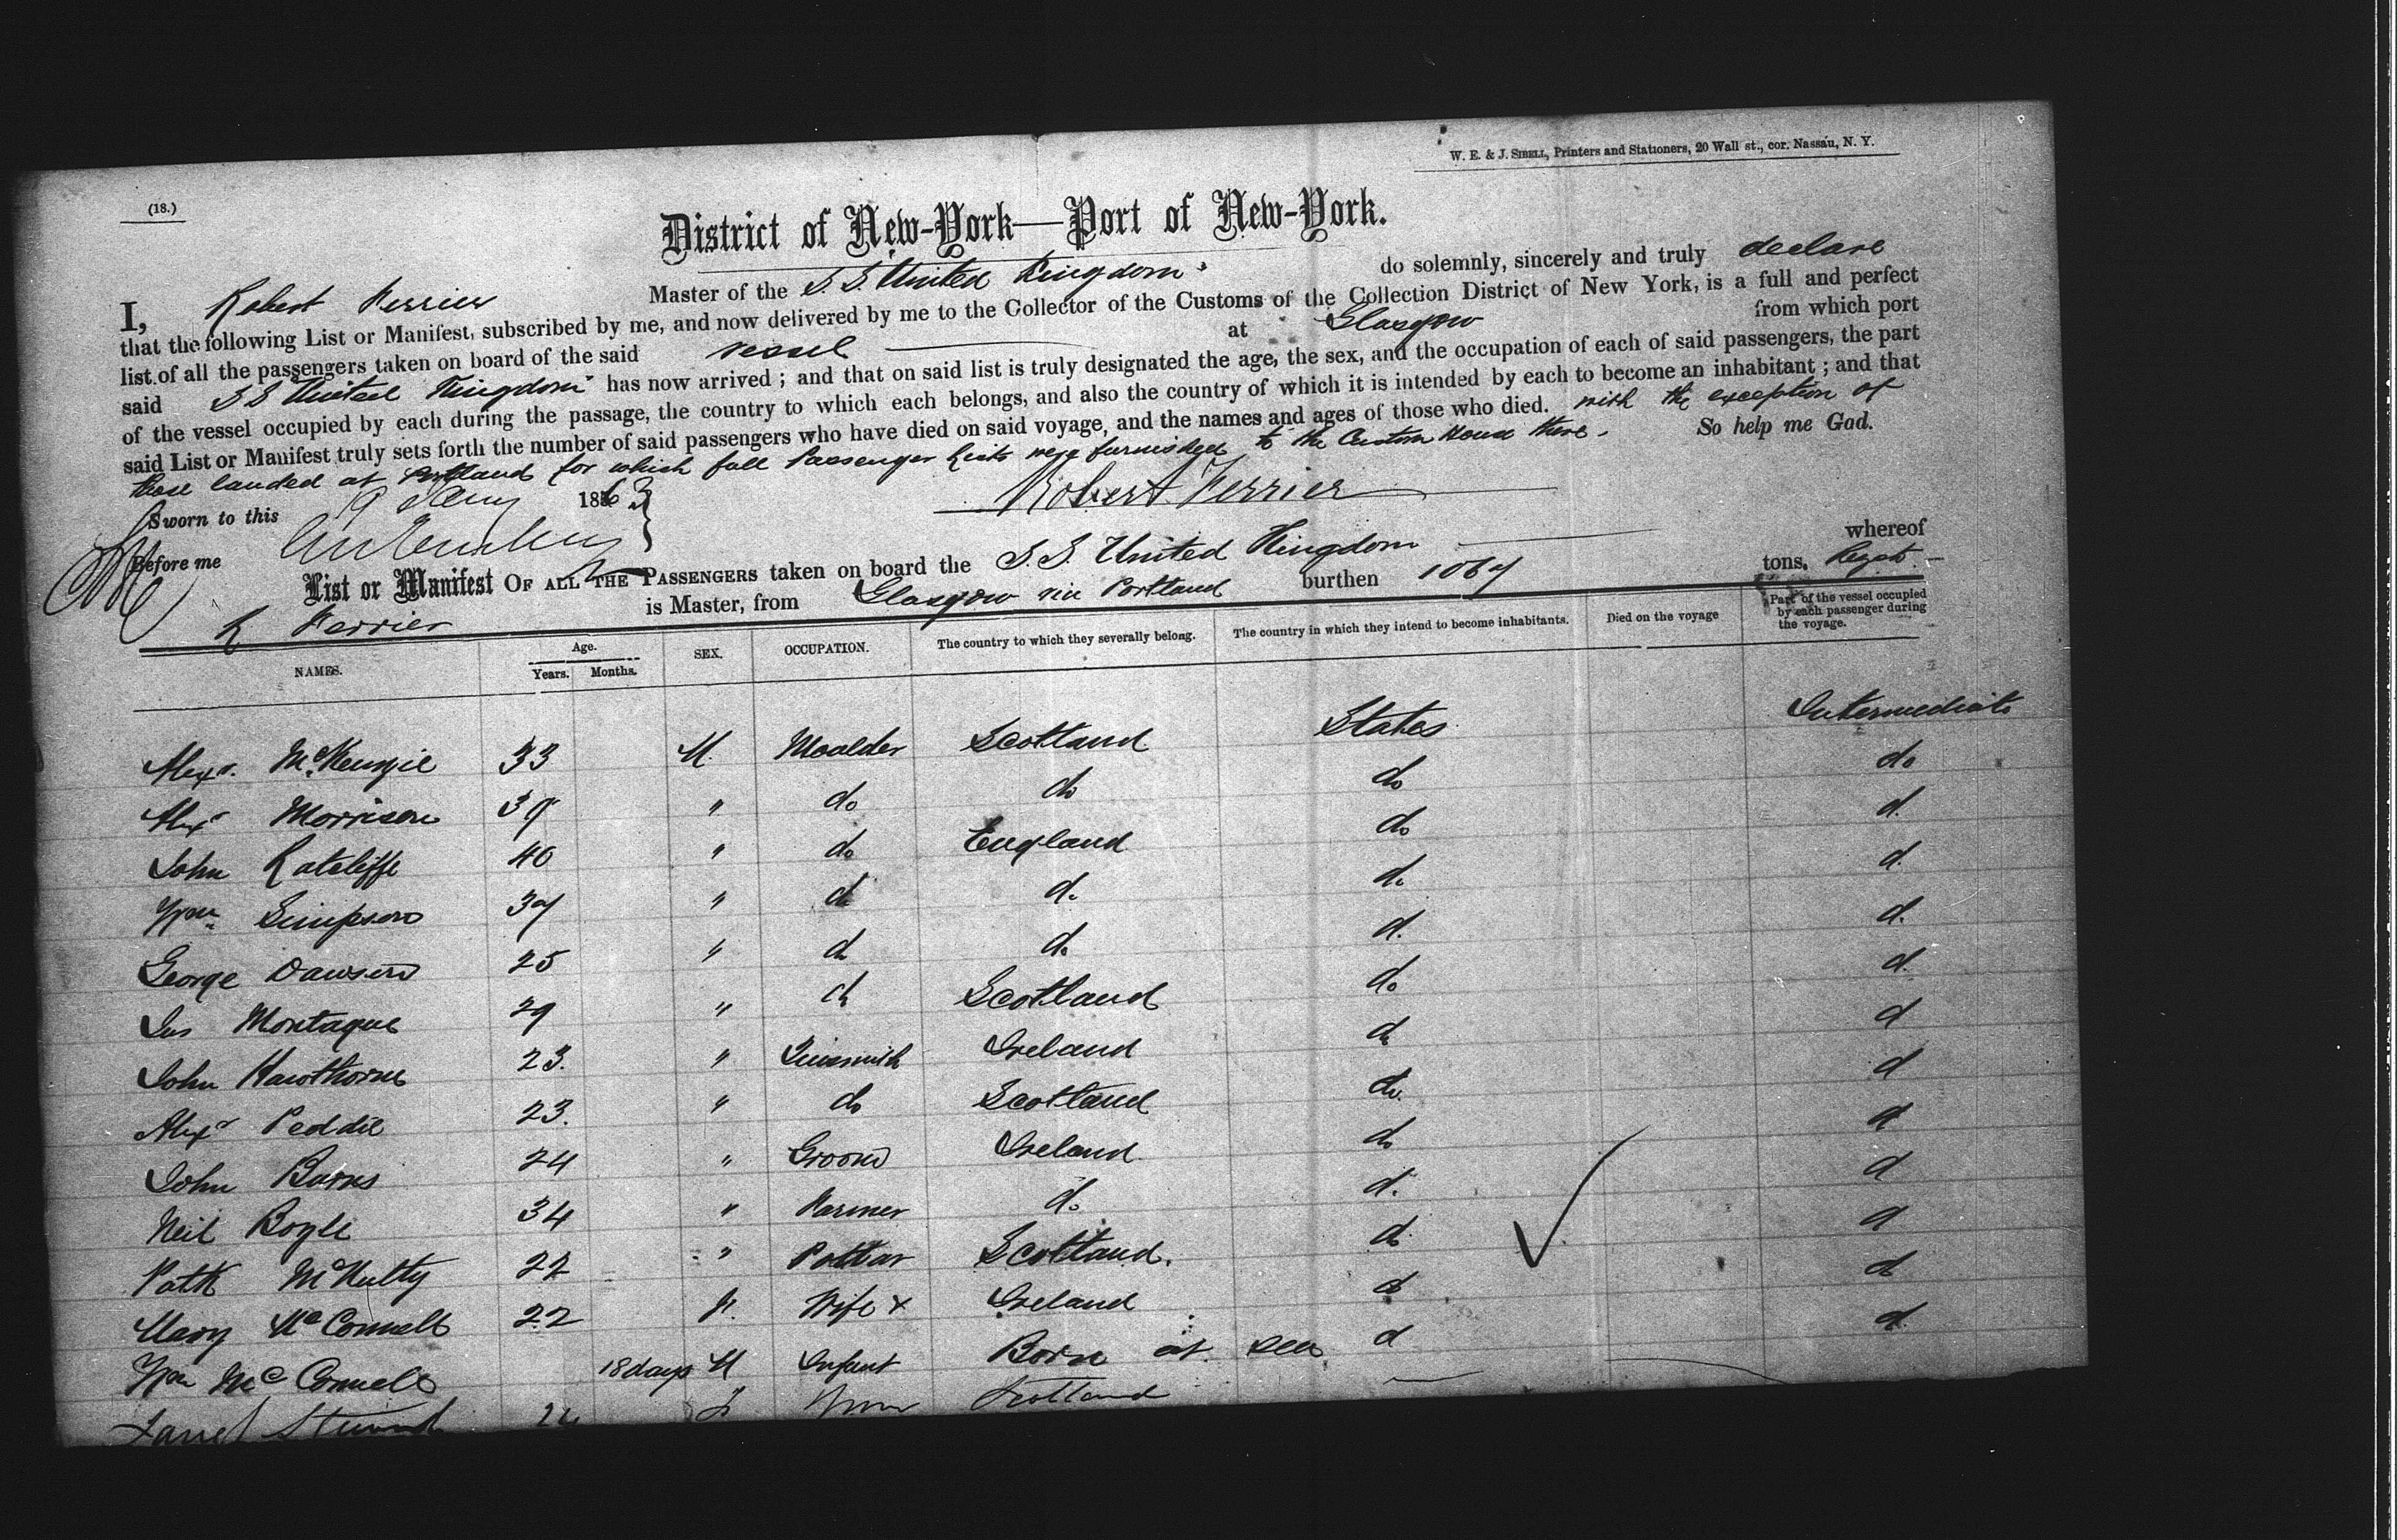 W. E. & J. SIBELL, Printers and Stationers, 20 Wall st., cor. Nassau, N. Y.
(18.)
District of New-York—Port of New-York.
I, Robert Ferrier Master of the S.S. United Kingdom do solemnly, sincerely and truly declare
that the following List or Manifest, subscribed by me, and now delivered by me to the Collector of the Customs of the Collection District of New York, is a full and perfect
list of all the passengers taken on board of the said vessel at Glasgow from which port
said S S United Kingdom has now arrived; and that on said list is truly designated the age, the sex, and the occupation of each of said passengers, the part
of the vessel occupied by each during the passage, the country to which each belongs, and also the country of which it is intended by each to become an inhabitant; and that
said List or Manifest truly sets forth the number of said passengers who have died on said voyage, and the names and ages of those who died. with the exception of
those landed at Portland for which full Passenger Lists were furnished to the Custom House there. So help me God.
Sworn to this 19 1863 Robert Ferrier
Before me
List or Manifest OF ALL THE PASSENGERS taken on board the S.S. United Kingdom whereof
R Ferrier is Master, from Glasgow via Portland burthen 1067 tons,
NAMES. Age. Years. Months. SEX. OCCUPATION. The country to which they severally belong. The country in which they intend to become inhabitants. Died on the voyage Part of the vessel occupied by each passenger during the voyage.
Alexr. McKenzie 33 M. Moulder Scotland States Intermediate
Alexr Morrison 39 " do do do do
John Ratcliffe 40 " do England do d.
Wm Simpson 37 " d d. d. d.
George Dawson 25 " d do d. d.
Jas Montague 29 " d Scotland do d.
John Hawthorne 23. " Tinsmith Ireland do d
Alexr Peddie 23. " do Scotland do. d
John Barns 24 " Groom Ireland do d
Neil Boyle 34 " Farmer do d. d
Patk McNulty 22 " Potter Scotland. do d
Mary McConnell 22 F. Wife x Ireland do d
Wm McConnell 18 days M Infant Born at sea d d.
Stewart F Scotland